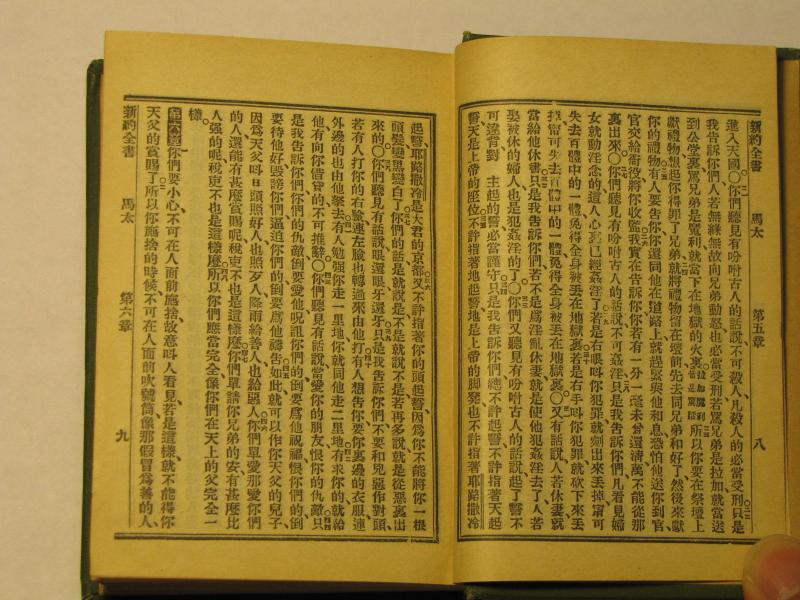 新約全書 馬太 第五章 八
進入天國〇你們聽見有吩咐古人的話說不可殺人凡殺人的必當受刑只是
我告訴你們人若無緣無故向兄弟動怒也必當受刑若罵兄弟是拉加就當送
到公堂裏罵兄弟是魔利就當下在地獄的火裏拉加魔利皆是罵話所以你要在祭壇上
獻禮物想起你得罪了兄弟就將禮物留在壇前先去同兄弟和好了然後來獻
你的禮物有人要告你你還同他在道路上就趕緊與他和息恐怕他送你到官
官交給衙役將你收監我實在告訴你你若有一分一毫未曾還清萬不能從那
裏出來〇你們聽見有吩咐古人的話說不可姦淫只是我告訴你們凡看見婦
女就動淫念的這人心裏已經姦淫了若是右眼叫你犯罪就剜出來丟掉甯可
失去百體中的一體免得全身被丟在地獄裏若是右手叫你犯罪就砍下來丟
掉甯可失去百體中的一體免得全身被丟在地獄裏〇又有話說人若休妻就
當給他休書只是我告訴你們若不是爲淫亂休妻就是使他犯姦淫去了人若
娶被休的婦人也是犯姦淫的了〇你們又聽見有吩咐古人的話說起了誓不
可違背對 主起的誓必當謹守只是我告訴你們總不許起誓不許指著天起
誓天是上帝的座位不許指著地起誓地是上帝的腳凳也不許指著耶路撒冷
起誓耶路撒冷是大君的京都又不許指著你的頭起誓因爲你不能將你一根
頭髮變黑變白了你們的話是就說是不是就說不是若再多說就是從惡裏出
來的〇你們聽見有話說眼還眼牙還牙只是我告訴你們不要和兇惡作對頭
若有人打你的右臉連左臉也轉過來由他打有人想告你要你裏邊的衣服連
外邊的也由他拏去有人勉强你走一里地你就同他走二里地有求你的就給
他有向你借貸的不可推辭〇你們聽見有話說當愛你的朋友恨你的仇敵只
是我告訴你們你們的仇敵倒要愛他呪詛你們的倒要爲他祝福恨你們的倒
要待他好毀謗你們逼迫你們的倒要爲他禱告如此就可以作你天父的兒子
因爲天父叫日頭照好人也照歹人降雨給善人也給惡人你們單愛那愛你們
的人還能有甚麼賞賜呢稅吏不也是這樣麼你們單請你兄弟的安有甚麼比
人强的呢稅吏不也是這樣麼所以你們應當完全像你們在天上的父完全一
樣
第六章你們要小心不可在人面前施捨故意叫人看見若是這樣就不能得你
天父的賞賜了所以你施捨的時候不可在人面前吹號筒像那假冒爲善的人
新約全書 馬太 第六章 九